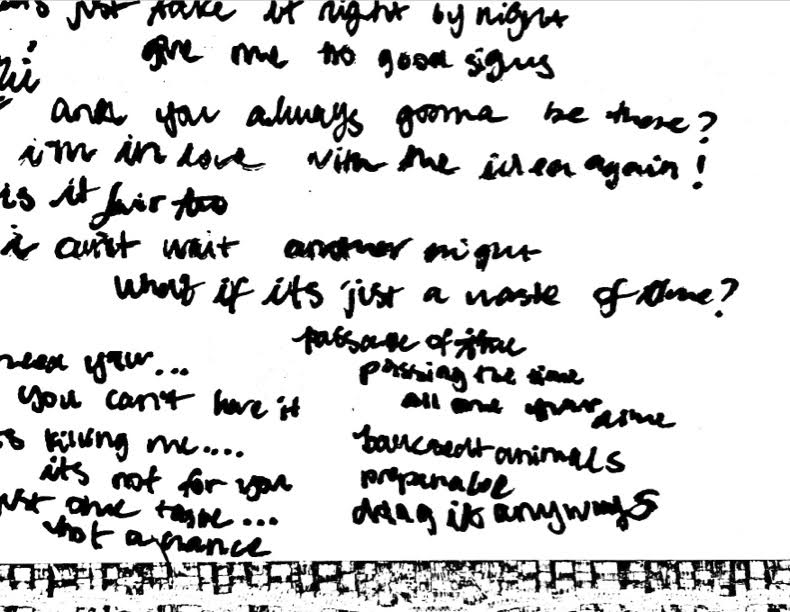 just take it night by night
give me no good signs
and you always gonna be there?
i'm in love with the idea again!
is it fair too
i can't wait another night
what if its just a waste of time?
passage of time
need your...
passing the time
you can't have it
all one
killing me....
animals
its not for you
just one taste...
doing it anyways
not a chance